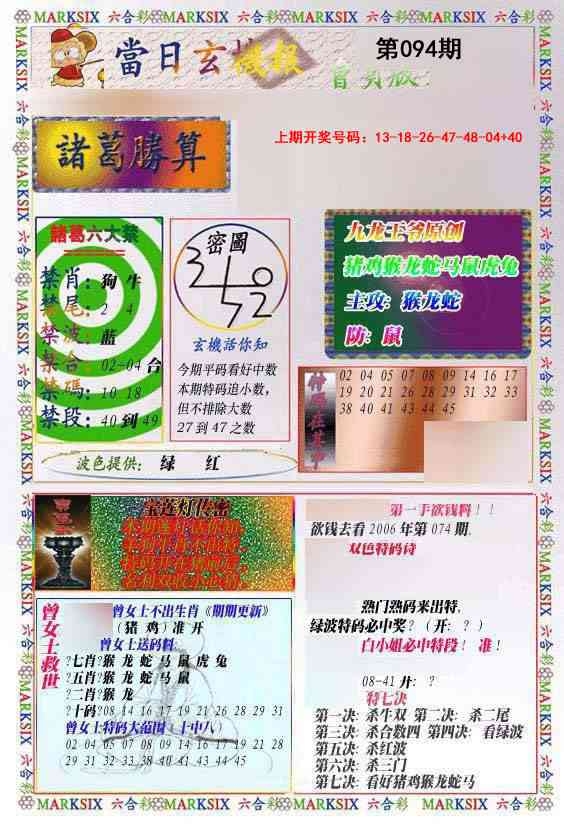 MARKSIX 六合彩 MARKSIX 六合彩 MARKSIX 六合彩 MARKSIX 六合彩
當日玄機報
第094期
上期开奖号码：13-18-26-47-48-04+40
諸葛勝算
諸葛六大禁
禁肖：狗 牛
禁尾：2 4
禁波：蓝
禁合：02-04 合
禁碼：10 18
禁段：40 到 49
密圖
玄機活你知
今期平码看好中数
本期特码追小数，
但不排除大数
27 到 47 之数
九龙王爷原创
猪鸡猴龙蛇马鼠虎兔
主攻：猴龙蛇
防：鼠
特码在其中
02 04 05 07 08 09 14 16 17
19 20 21 26 28 29 31 32 33
38 40 41 43 44 45
波色提供： 绿 红
宝莲灯传密
曾女士救世
曾女士不出生肖《期期更新》
（猪 鸡）准 开
曾女士送码料
?七肖?猴 龙 蛇 马 鼠 虎 兔
?五肖?猴 龙 蛇 马 鼠
?二肖?猴 龙
?十码?08 14 16 17 19 21 26 28 29 31
曾女士特码大范围（十中八）
02 04 05 07 08 09 14 16 17 19 21 28
29 31 32 33 38 40 41 43 44 45
第一手欲钱料！！
欲钱去看 2006 年第 074 期.
双色特码诗
熱门熱码来出特，
绿波特码必中奖？（开：？）
白小姐必中特段！ 准！
08-41 开：？
特七决
第一决：杀牛双 第二决：杀二尾
第三决：杀合数四 第四决：看绿波
第五决：杀红波
第六决：杀三门
第七决：看好猪鸡猴龙蛇马
MARKSIX 六合彩 MARKSIX 六合彩 MARKSIX 六合彩 MARKSIX 六合彩